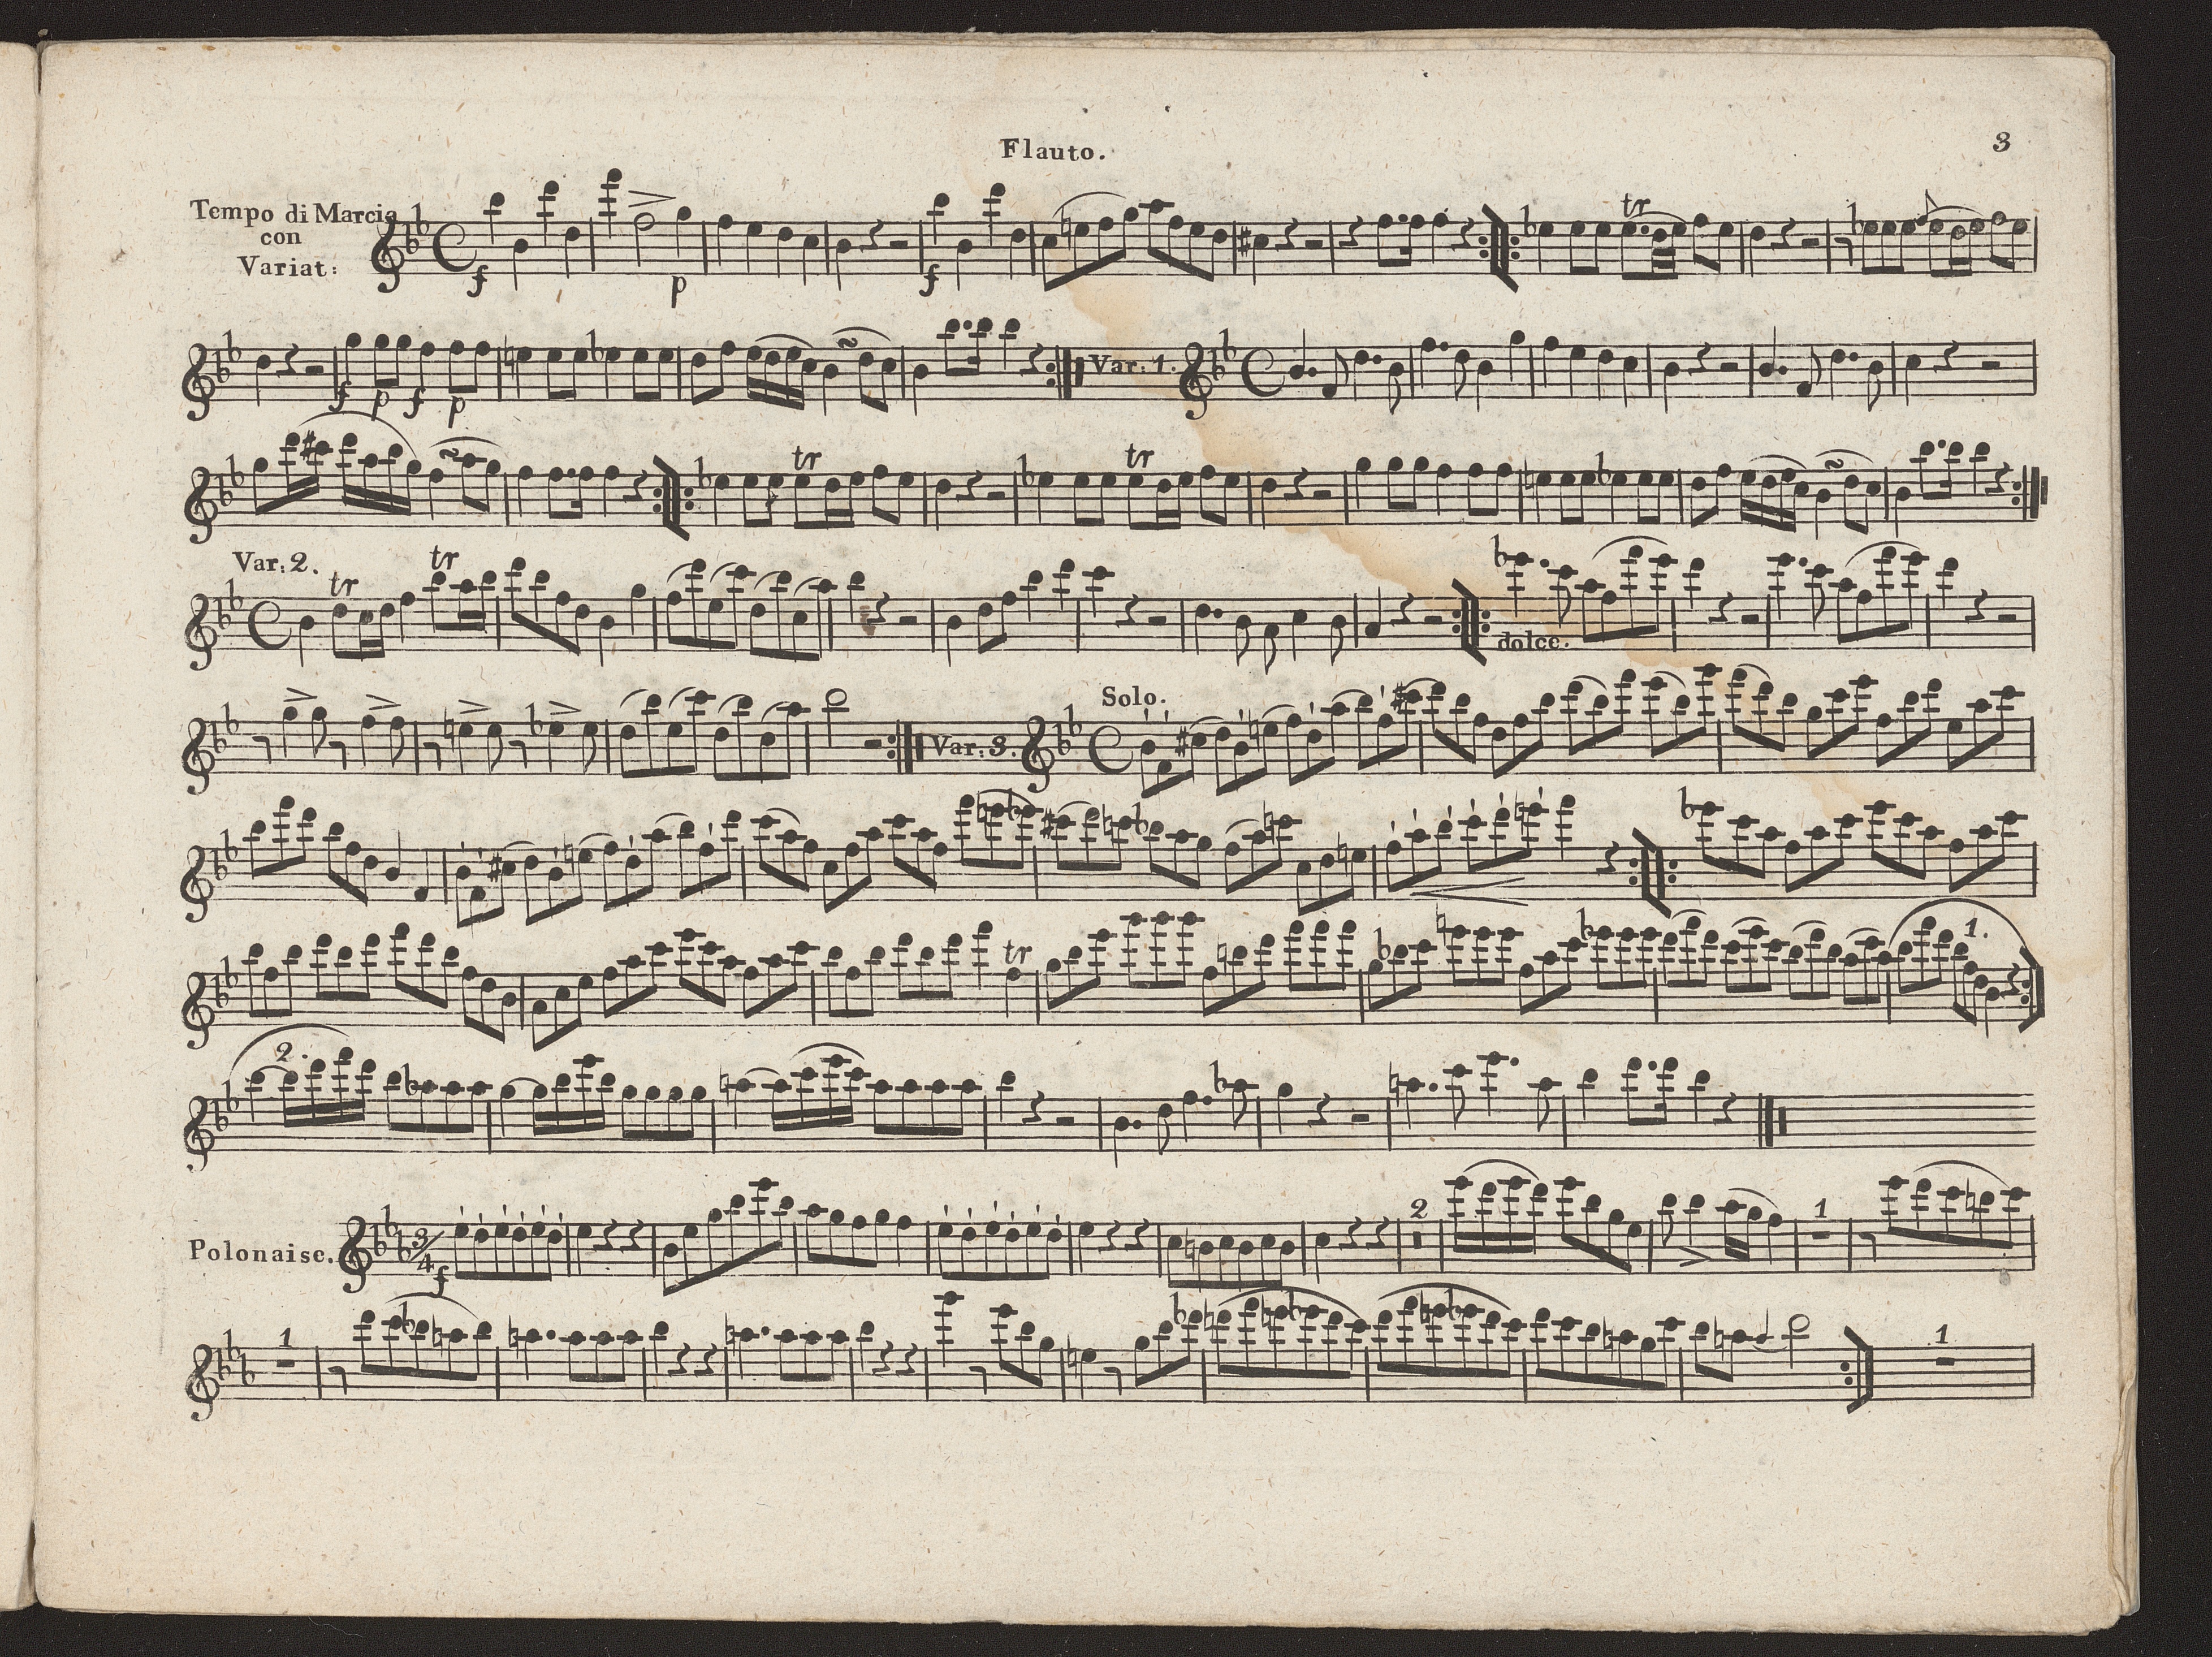 Flauto.
3
Tempo di Marcia
con
Variat:
f
p
f
tr
f p f p
Var: 1.
tr
tr
Var: 2.
tr
tr
dolce.
Var: 3.
Solo.
tr
1.
2.
Polonaise.
3/4
f
2
1
1
1